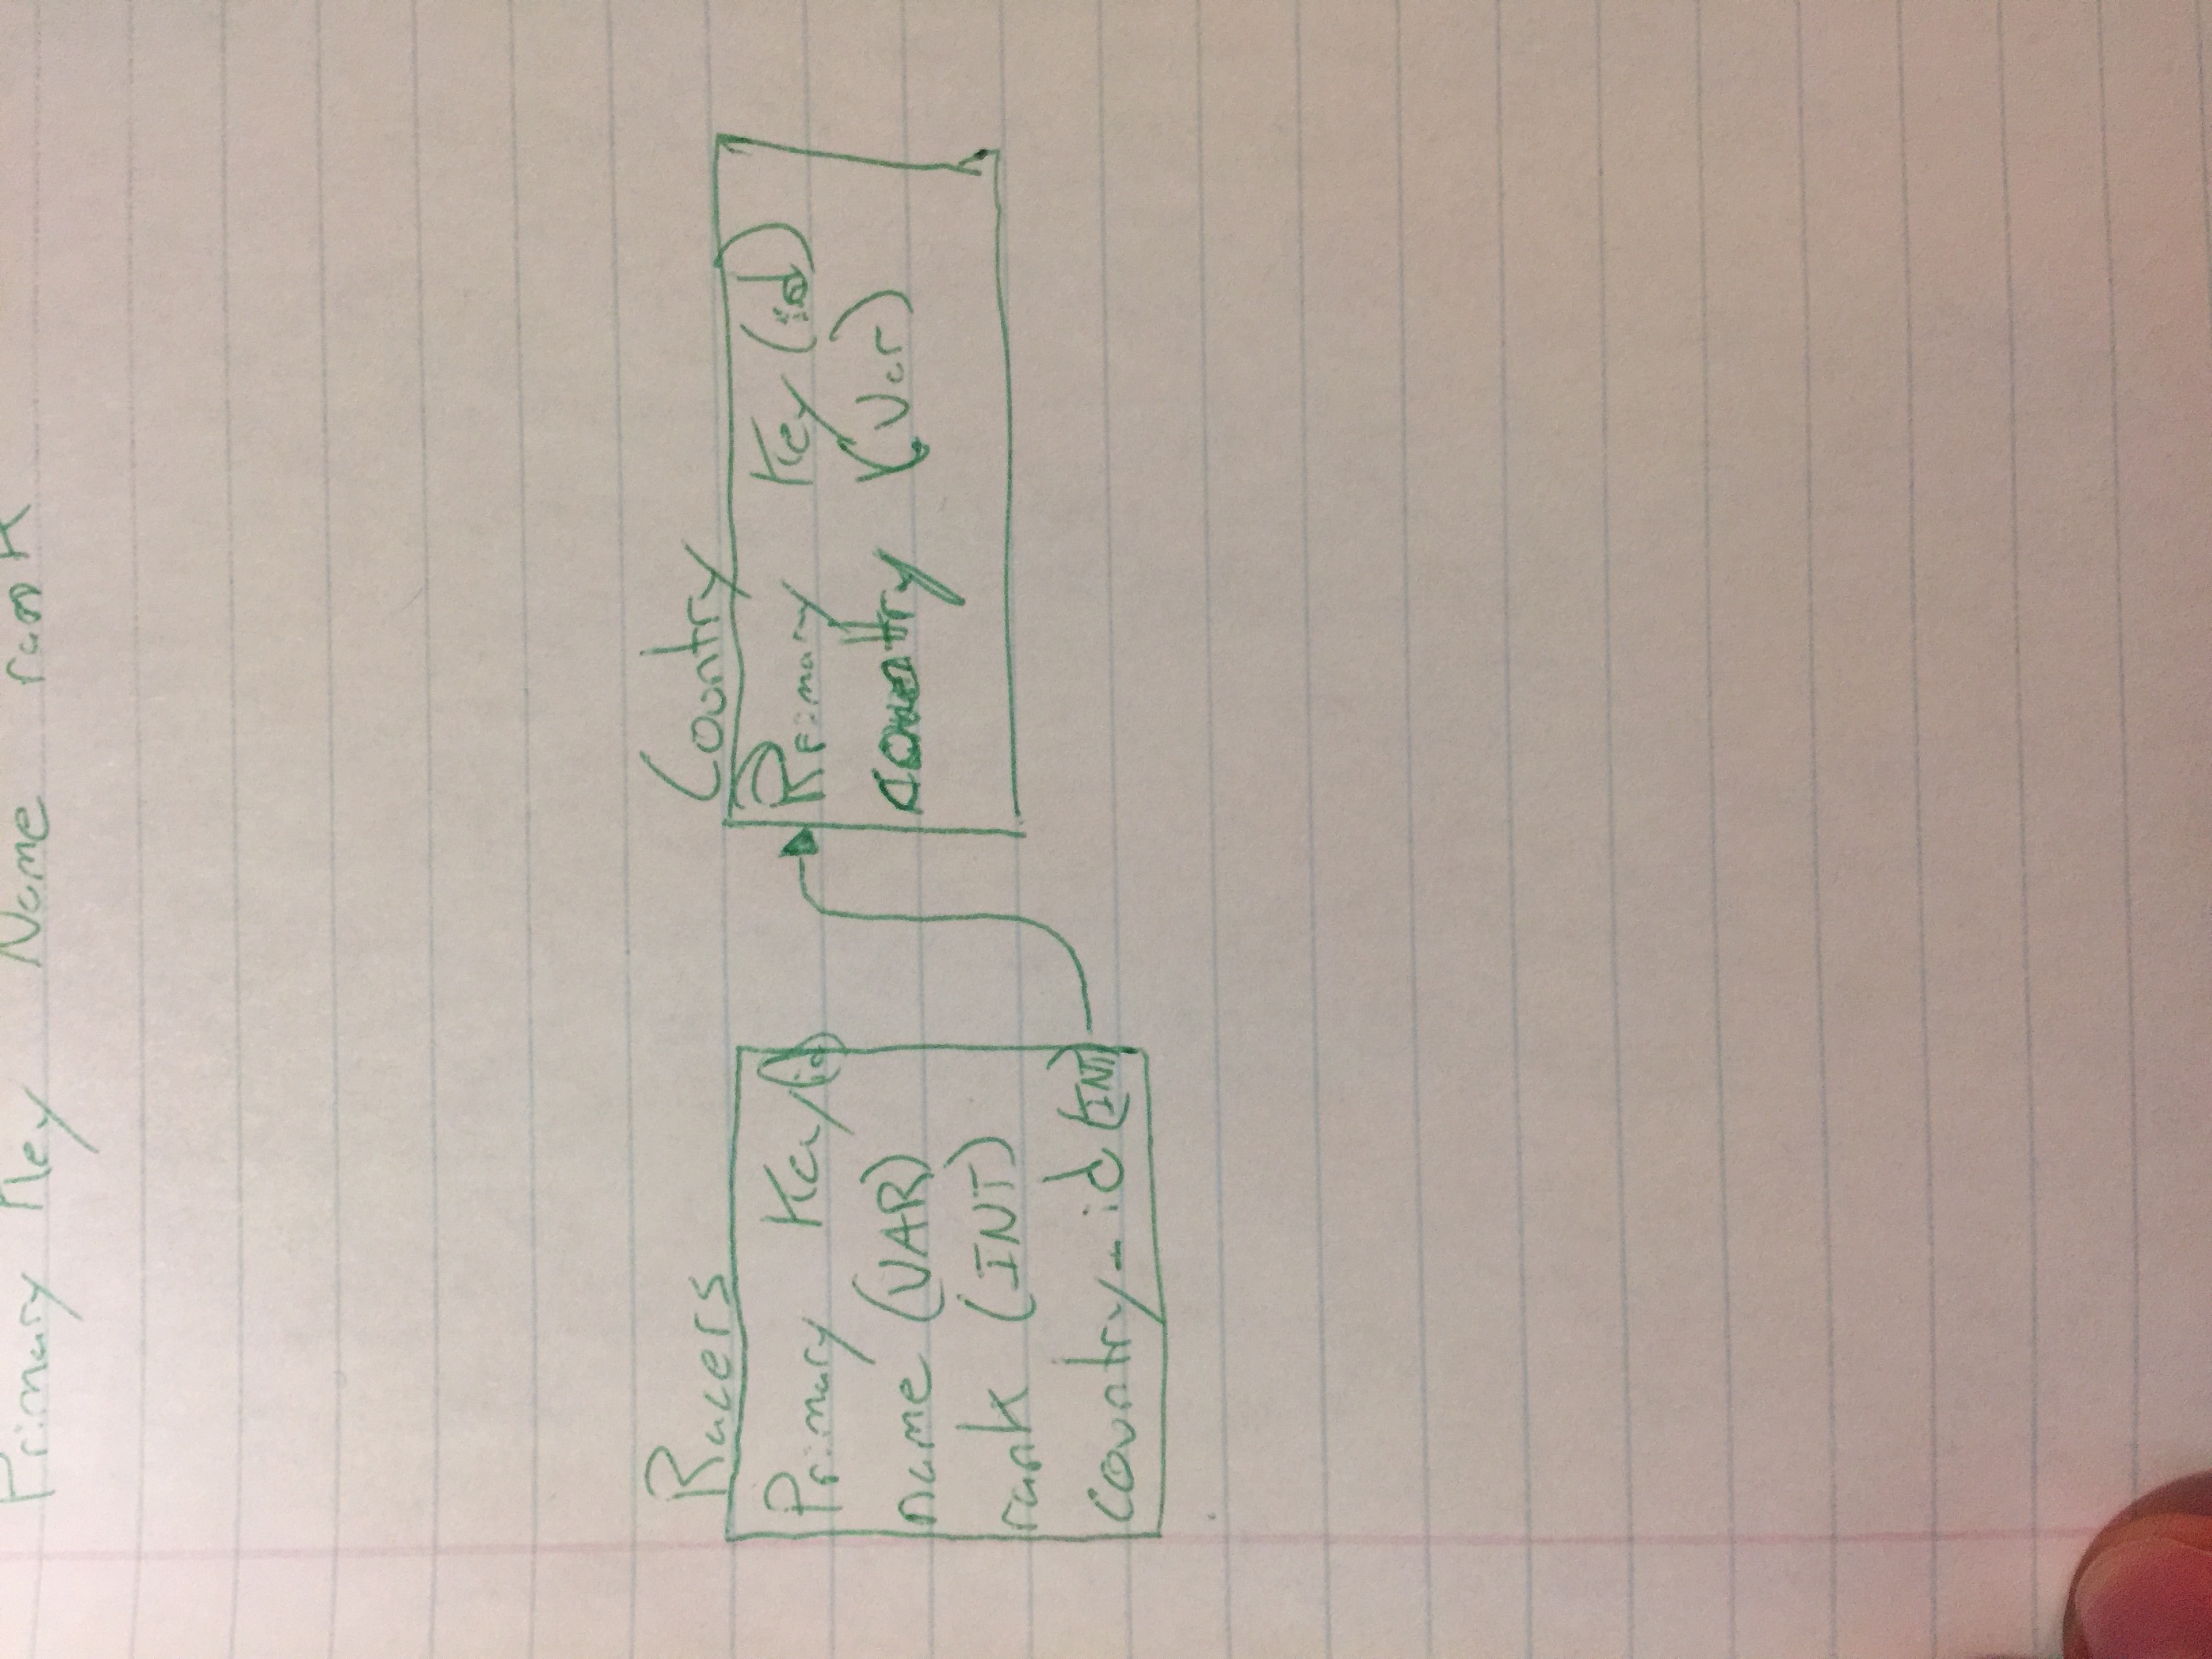 Primary Key Name rank
Racers
Primary Key (id)
name (VAR)
rank (INT)
country_id (INT)
Country
Primary Key (id)
country (Var)